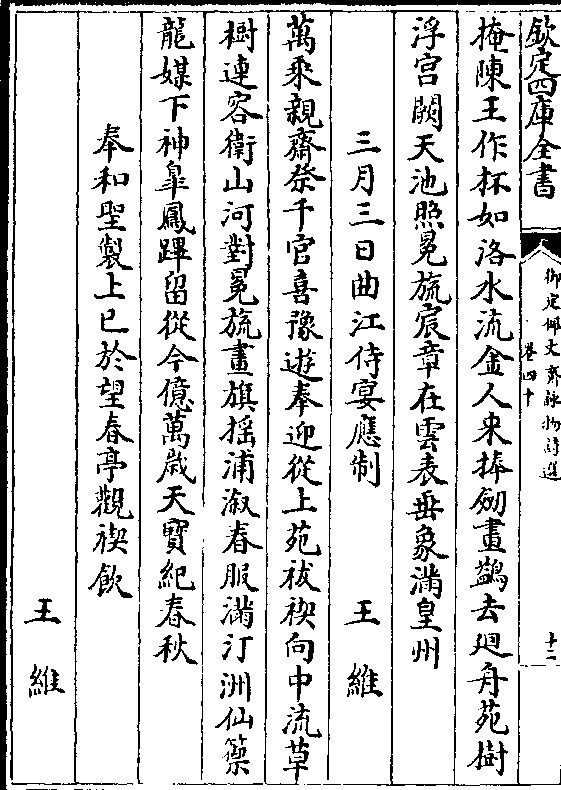 欽定四庫全書
御定佩文齋詠物詩選
卷四十
十二
掩陳王作杯如洛水流金人来捧劒畫鷁去迴舟苑樹
浮宮闕天池照冕旒宸章在雲表垂象滿皇州
三月三日曲江侍宴應制
王維
萬乘親齋祭千官喜豫遊奉迎從上苑祓禊向中流草
樹連容衛山河對冕旒畫旗揺浦溆春服滿汀洲仙籞
龍媒下神臯鳳蹕留從今億萬歲天寶紀春秋
奉和聖製上巳於望春亭觀禊飲
王維